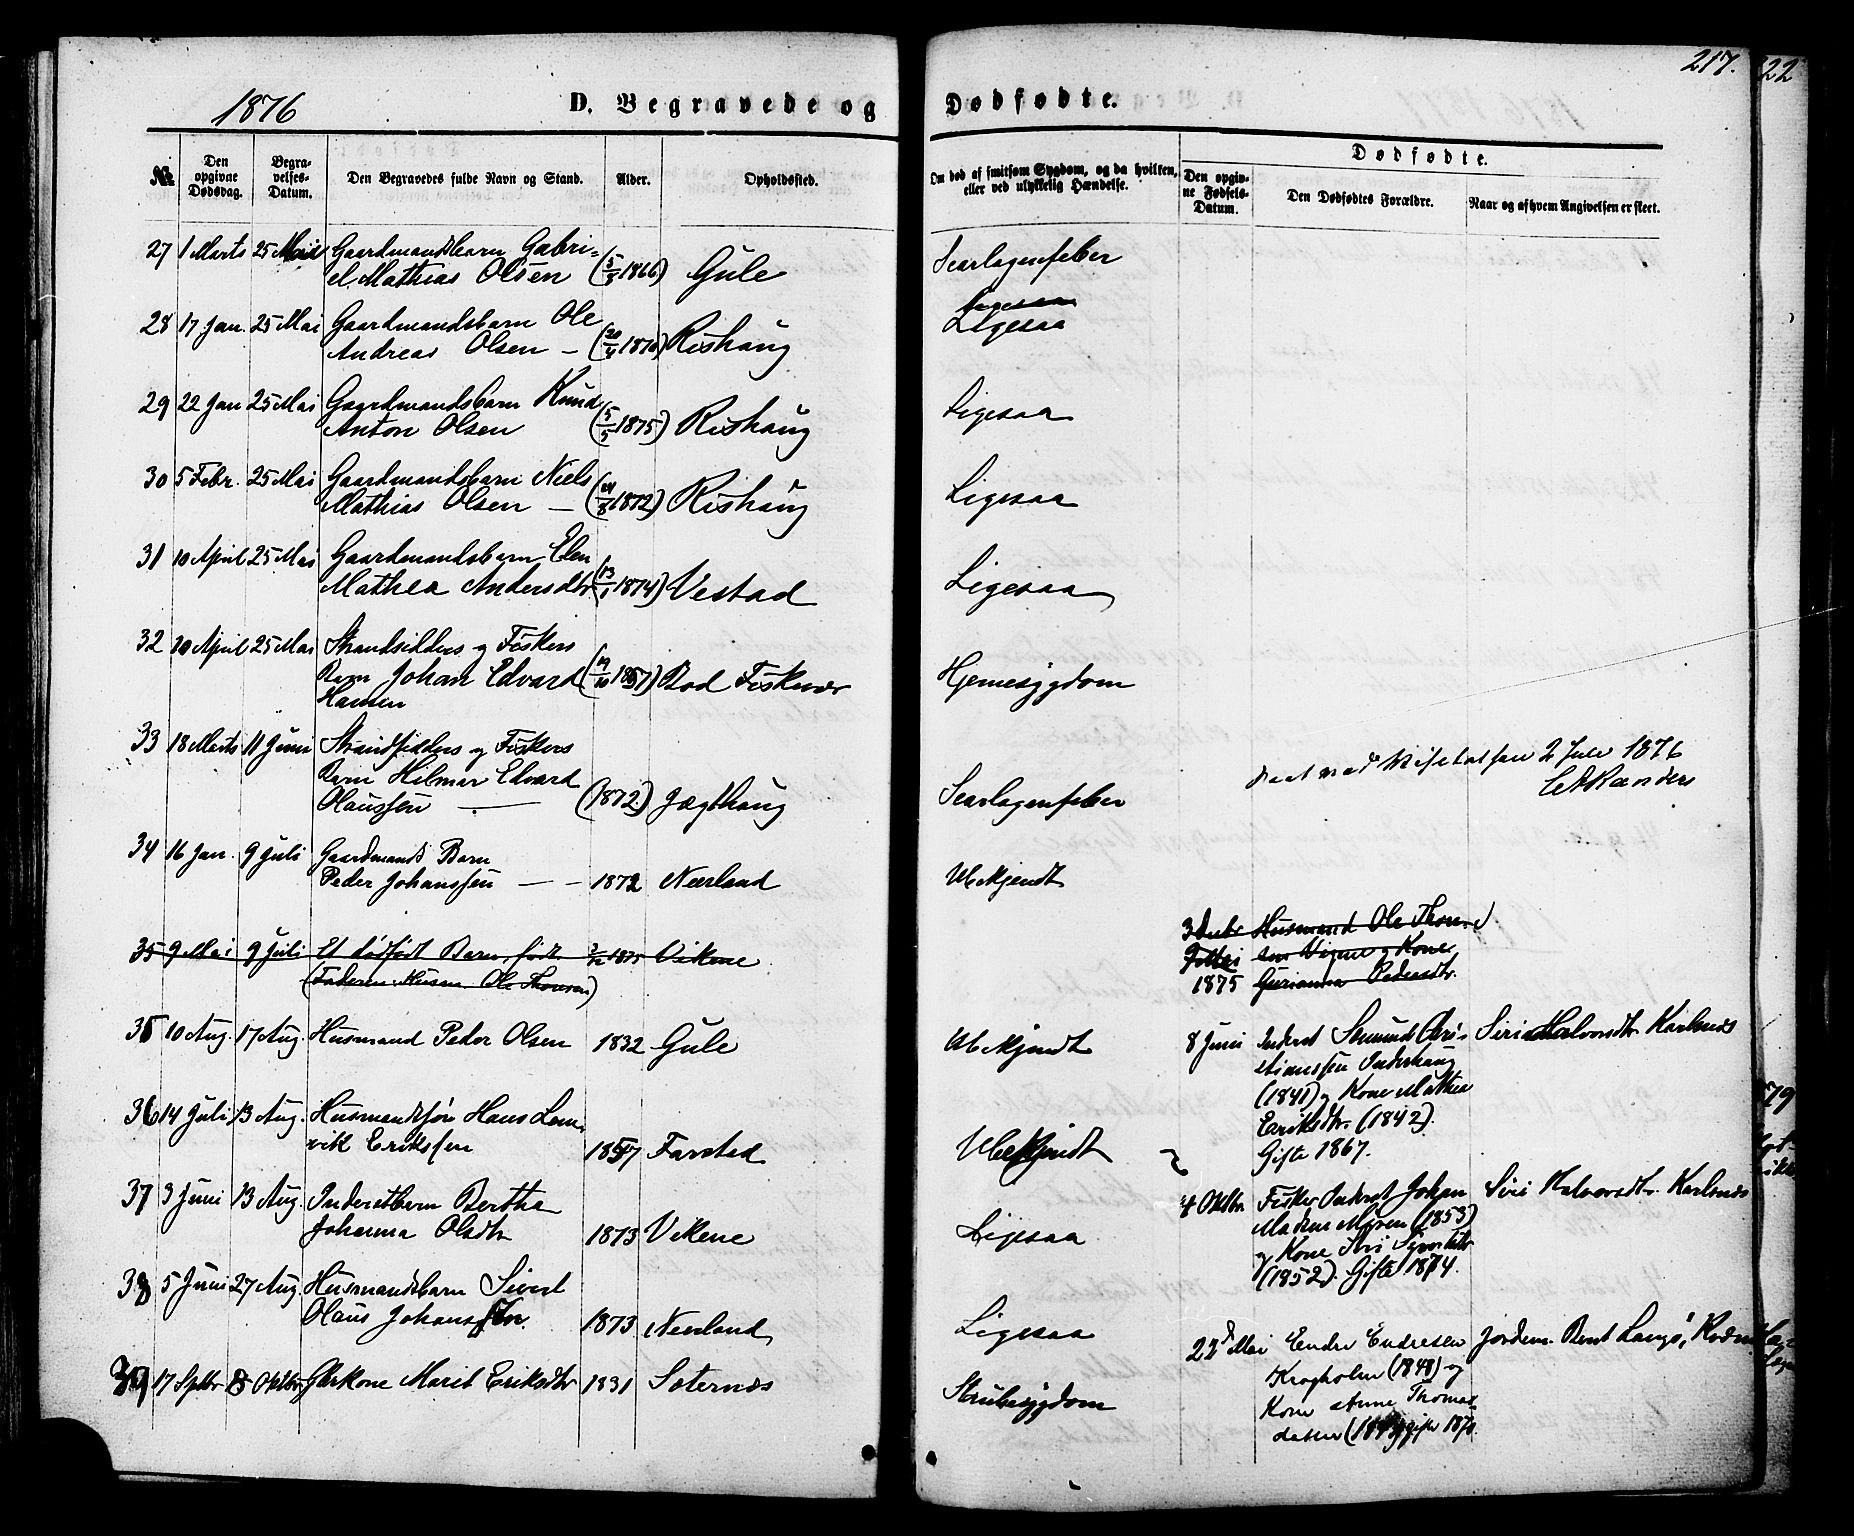 217.
22
1876
D. Begravede og Dødfødte.
No.
Den opgivne Dødsdag.
Begravelses-Datum.
Den Begravedes fulde Navn og Stand.
Alder.
Opholdssted.
Om død af smitsom Sygdom, og da hvilken, eller ved ulykkelig Hændelse.
Dødfødte.
Den opgivne Fødsels-Datum.
Den Dødfødtes Forældre.
Naar og af hvem Angivelsen er skeet.
27 1 Marts 25 Mai Gaardmandsbarn Gabri-
el Mathias Olsen (5/8 1866) Gule Scarlagensfeber
Ligesaa
28 17 Jan. 25 Mai Gaardmandsbarn Ole
Andreas Olsen – (20/4 1870) Rishaug Ligesaa
29 22 Jan 25 Mai Gaardmandsbarn Knud
Anton Olsen (5/5 1875) Rishaug Ligesaa
30 5 Febr. 25 Mai Gaardmandsbarn Niels
Mathias Olsen – (/8 1872) Rishaug Ligesaa
31 10 April 25 Mai Gaardmandsbarn Elen
Mathea Andersdtr. (13/1 1874) Vestad Ligesaa
32 20 April 25 Mai Strandsidders og Fiskers
Barn Johan Edvard (19/10 1857) Bod Fiskevær Hjernesygdom
Hansen
33 18 Marts 11 Juni Strandsidders og Fiskers
Barn Hilmar Edvard
Olaussen – (1872.) Jægthaug Scarlagensfeber
2 Juli 1876
34 16 Jan. 9 Juli Gaardmands Barn
Peder Johanssen – – 1872 Nærland Ubekjendt
35 9 Mai 9 Juli Et dødfødt Barn, født 1875 Vikene
(Faderen: Husm. Ole Thomsen)
Husmand Ole Thom-
sen Vigene og Kone
1875 Gurianna Pedersdtr.
35 10 Aug. 17 Aug. Husmand Peder Olsen 1832 Gule Ubekjendt
8 Juni Inderst Semund Chri-
stianssen Inderhaug
(1841) og Kone Mathea
Eriksdtr. (1842).
Gifte 1867.
Siri Halvorsdtr Karlsnes
36 14 Juli 13 Aug. Husmandssøn Hans Lem-
vik Erikssen 1857 Farstad Ubekjendt
37 3 Juni 13 Aug. Inderstbarn Bertha
Johanna Olsdtr 1873 Vikene Ligesaa
4 Oktbr Fisker Inderst Johan
Madsen Myren (1853)
og Kone Siri Sivertsdtr
(1852). Gifte 1874.
Siri Halvorsdtr. Karlsnes
38 5 Juni 27 Aug. Husmandsbarn Sivert
Olaus Johanssen. 1873 Nerland Ligesaa
22d Mai Endre Endresen
Kragholm (1848) og
Kone Anne Thomas-
datter gifte 1870.
Jordem. Berit Langø,
39 17 Sptbr 8 Oktbr Gbrkone Marit Eriksdtr 1831 Sæternes Strubesygdom